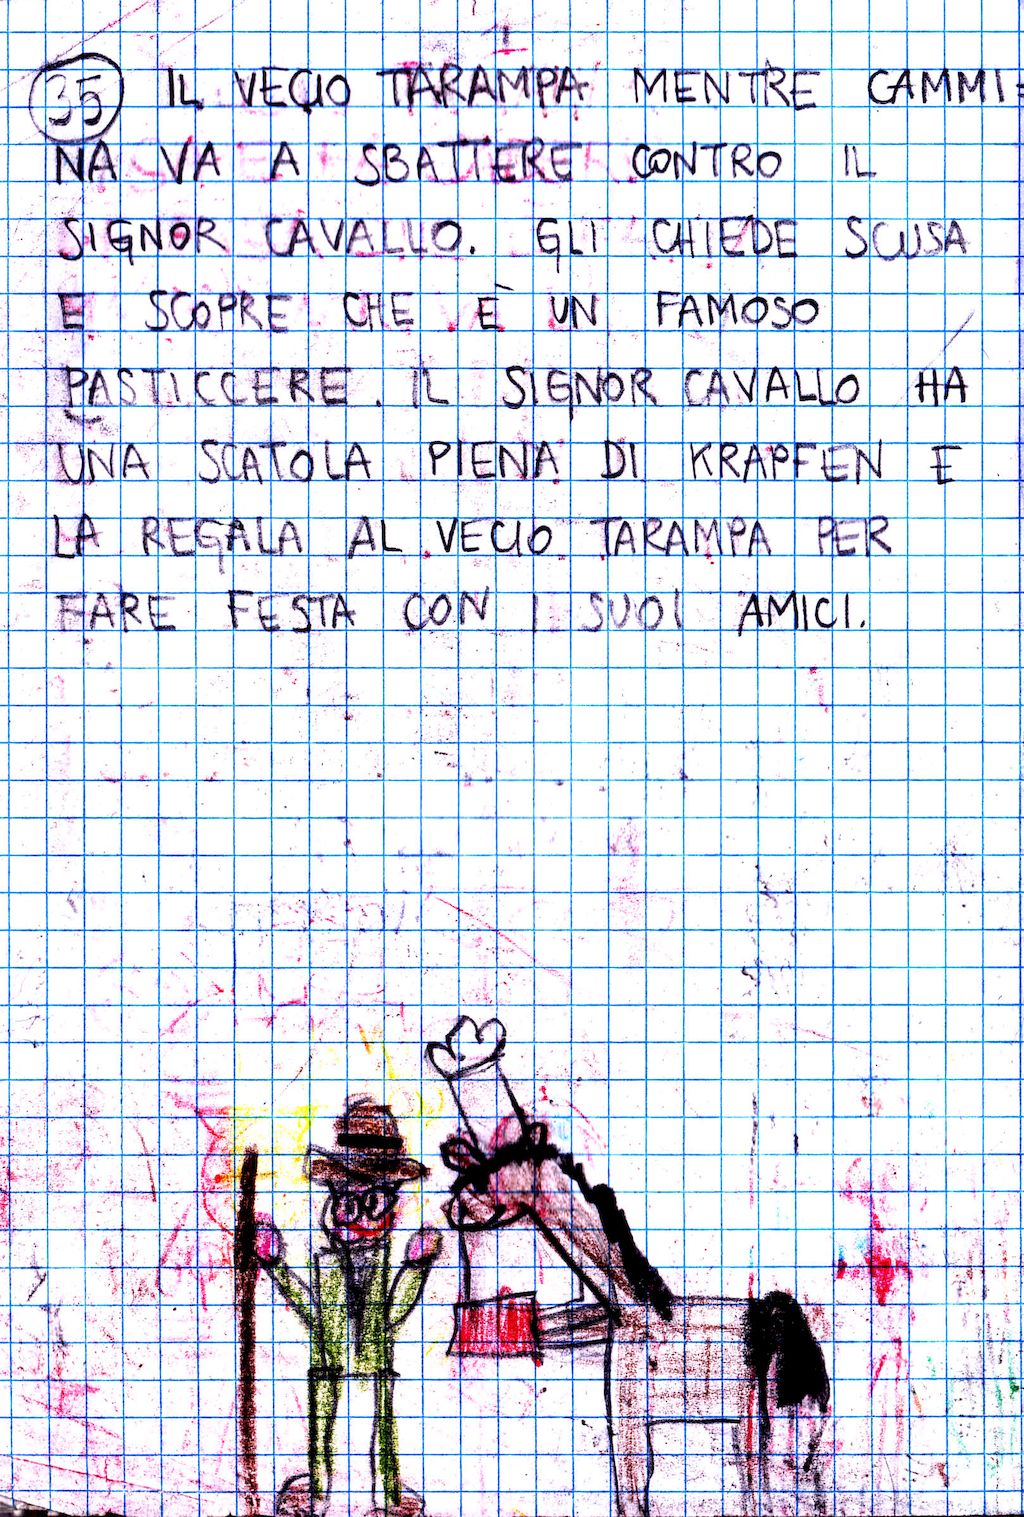 35 IL VECIO TARAMPA MENTRE CAMMI=
NA VA A SBATTERE CONTRO IL
SIGNOR CAVALLO. GLI CHIEDE SCUSA
E SCOPRE CHE È UN FAMOSO
PASTICCERE. IL SIGNOR CAVALLO HA
UNA SCATOLA PIENA DI KRAPFEN E
LA REGALA AL VECIO TARAMPA PER
FARE FESTA CON I SUOI AMICI.